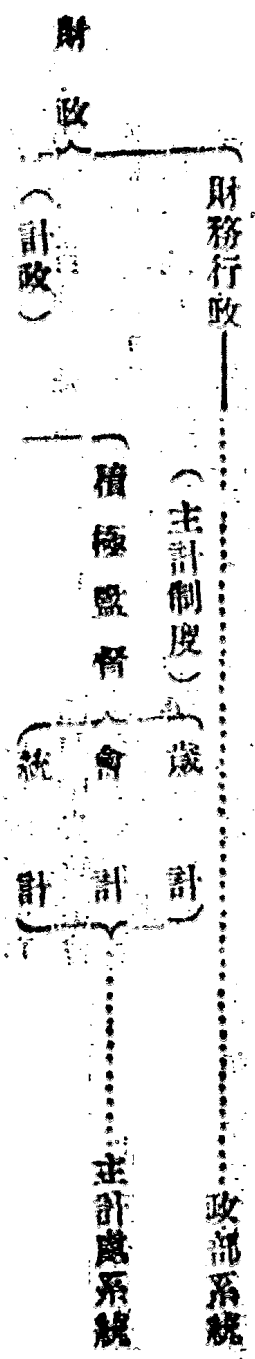 財政
財務行政
政部系統
（計政）
（主計制度）
積極監督
歲計
會計
統計
主計處系統